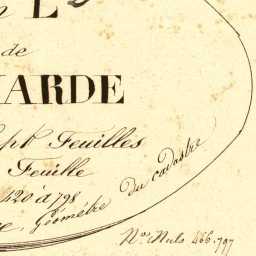 L
de
ARDE
Feuilles
Feuille
420 à 798
Géomètre du cadastre
Nos Nuls 466. 797